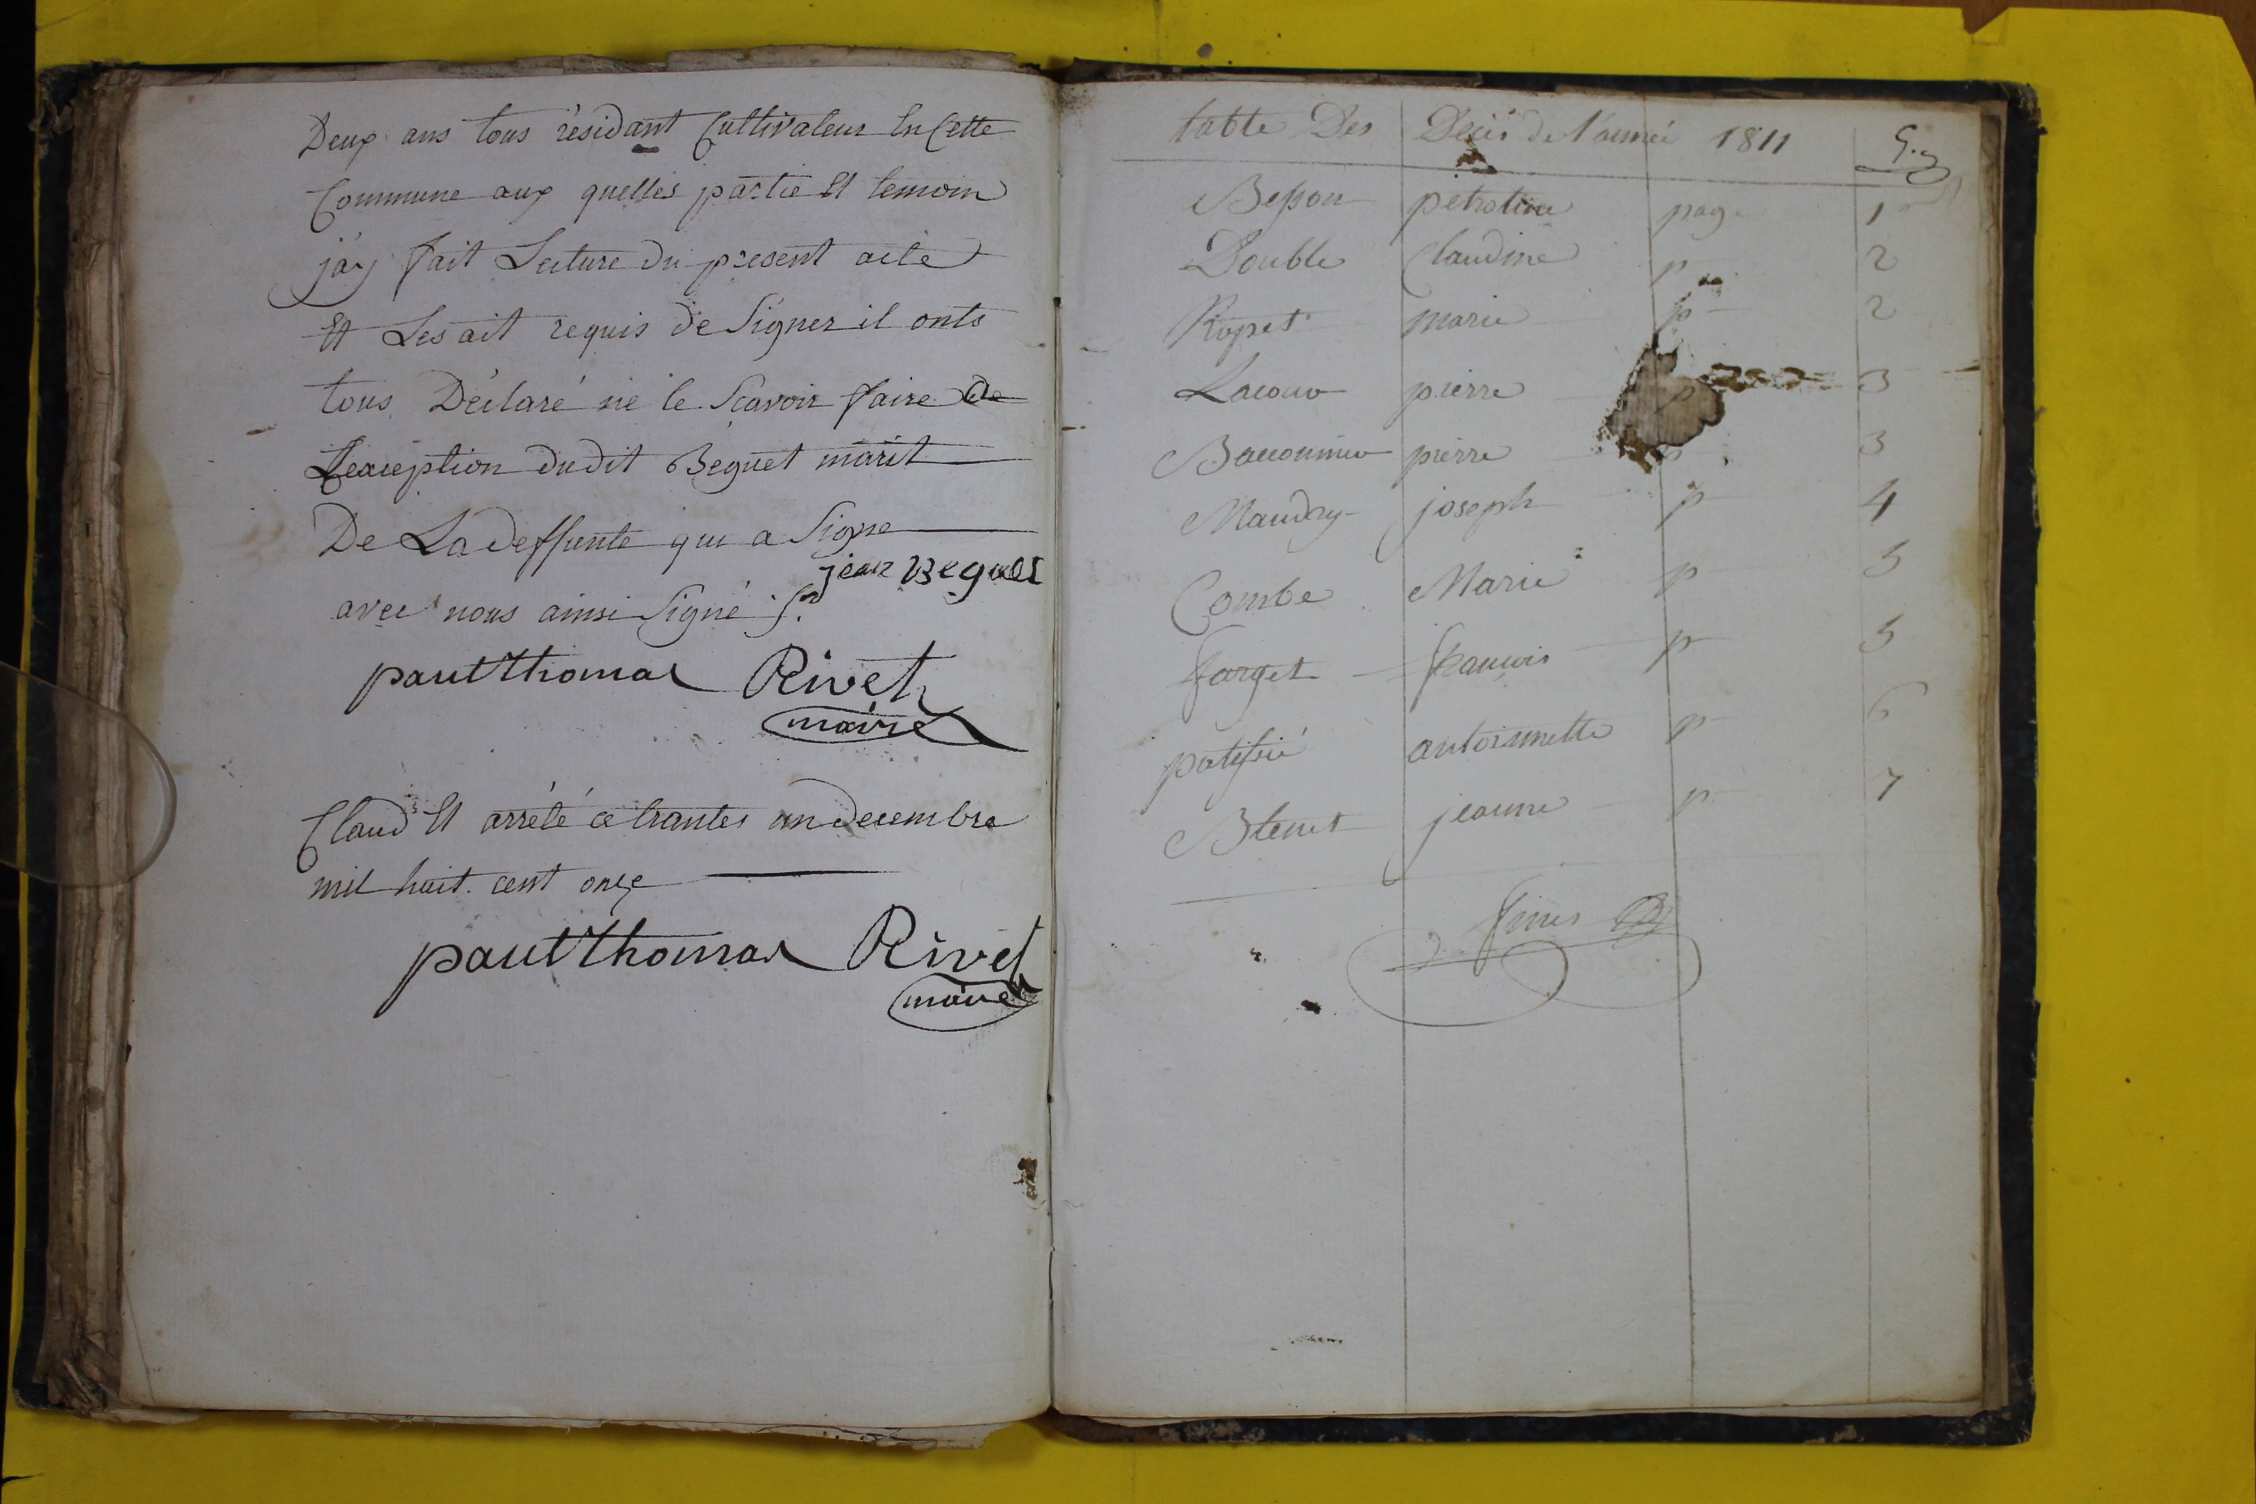 Deux ans tous résidant Cultivateur En Cette
Commune aux quelles partie Et temoin
j'ay fait Lecture du présent acte
Et Les ait requis de Signer il onts
tous Déclaré ne le Scavoir faire De
Lexception dudit Béguet marit
De La deffunte qui a Signe
jean Béguet
avec nous ainsi Signé
paul thomas Rivet
maire
Claud Et arrété ce trantes un decembre
mil huit cent onze
paul thomas Rivet
maire
table Des Décés de l'année 1811
Besson petroline page 1
Double Claudine p 2
Ropet marie p 2
Lacour pierre p 3
pierre 3
Maudry joseph p 4
Combe Marie p 5
farget francois p 5
patissié antoinnette p 6
jeanne p 7